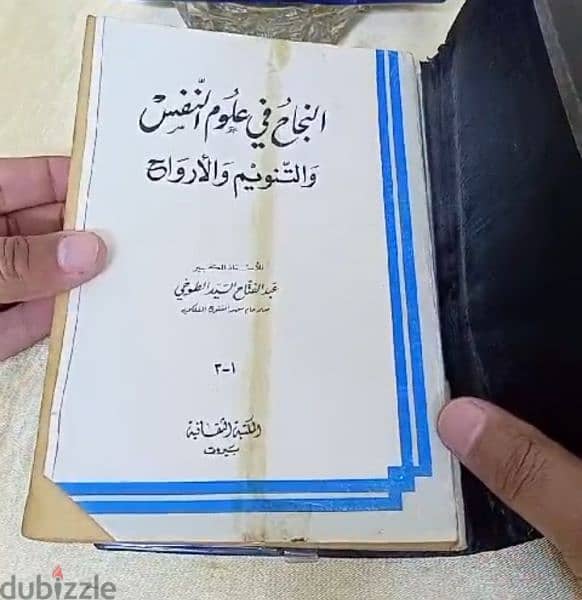 النجاح في علوم النفس
والتنويم والأرواح
للأستاذ الكبير
عبد الفتاح السيد الطوخي
١-٣
المكتبة الثقافية
بيروت
dubizzle